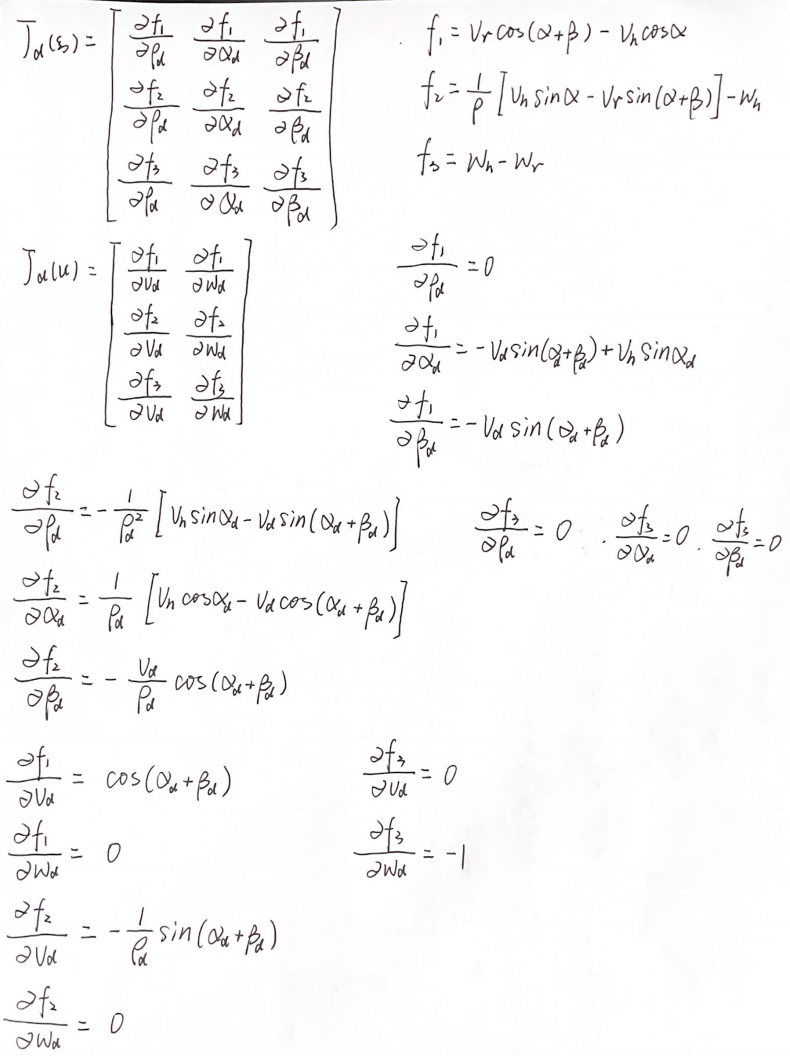 J_d(ξ) = [ ∂f₁/∂ρ_d ∂f₁/∂α_d ∂f₁/∂β_d
∂f₂/∂ρ_d ∂f₂/∂α_d ∂f₂/∂β_d
∂f₃/∂ρ_d ∂f₃/∂α_d ∂f₃/∂β_d ]
f₁ = v_r cos(α+β) - v_h cosα
f₂ = 1/ρ [v_h sinα - v_r sin(α+β)] - w_h
f₃ = w_h - w_r
J_d(u) = [ ∂f₁/∂v_d ∂f₁/∂w_d
∂f₂/∂v_d ∂f₂/∂w_d
∂f₃/∂v_d ∂f₃/∂w_d ]
∂f₁/∂ρ_d = 0
∂f₁/∂α_d = -v_d sin(α_d+β_d) + v_h sinα_d
∂f₁/∂β_d = -v_d sin(α_d+β_d)
∂f₂/∂ρ_d = - 1/ρ_d² [v_h sinα_d - v_d sin(α_d+β_d)]
∂f₂/∂α_d = 1/ρ_d [v_h cosα_d - v_d cos(α_d+β_d)]
∂f₂/∂β_d = - v_d/ρ_d cos(α_d+β_d)
∂f₃/∂ρ_d = 0 . ∂f₃/∂α_d = 0 . ∂f₃/∂β_d = 0
∂f₁/∂v_d = cos(α_d+β_d)
∂f₁/∂w_d = 0
∂f₂/∂v_d = - 1/ρ_d sin(α_d+β_d)
∂f₂/∂w_d = 0
∂f₃/∂v_d = 0
∂f₃/∂w_d = -1